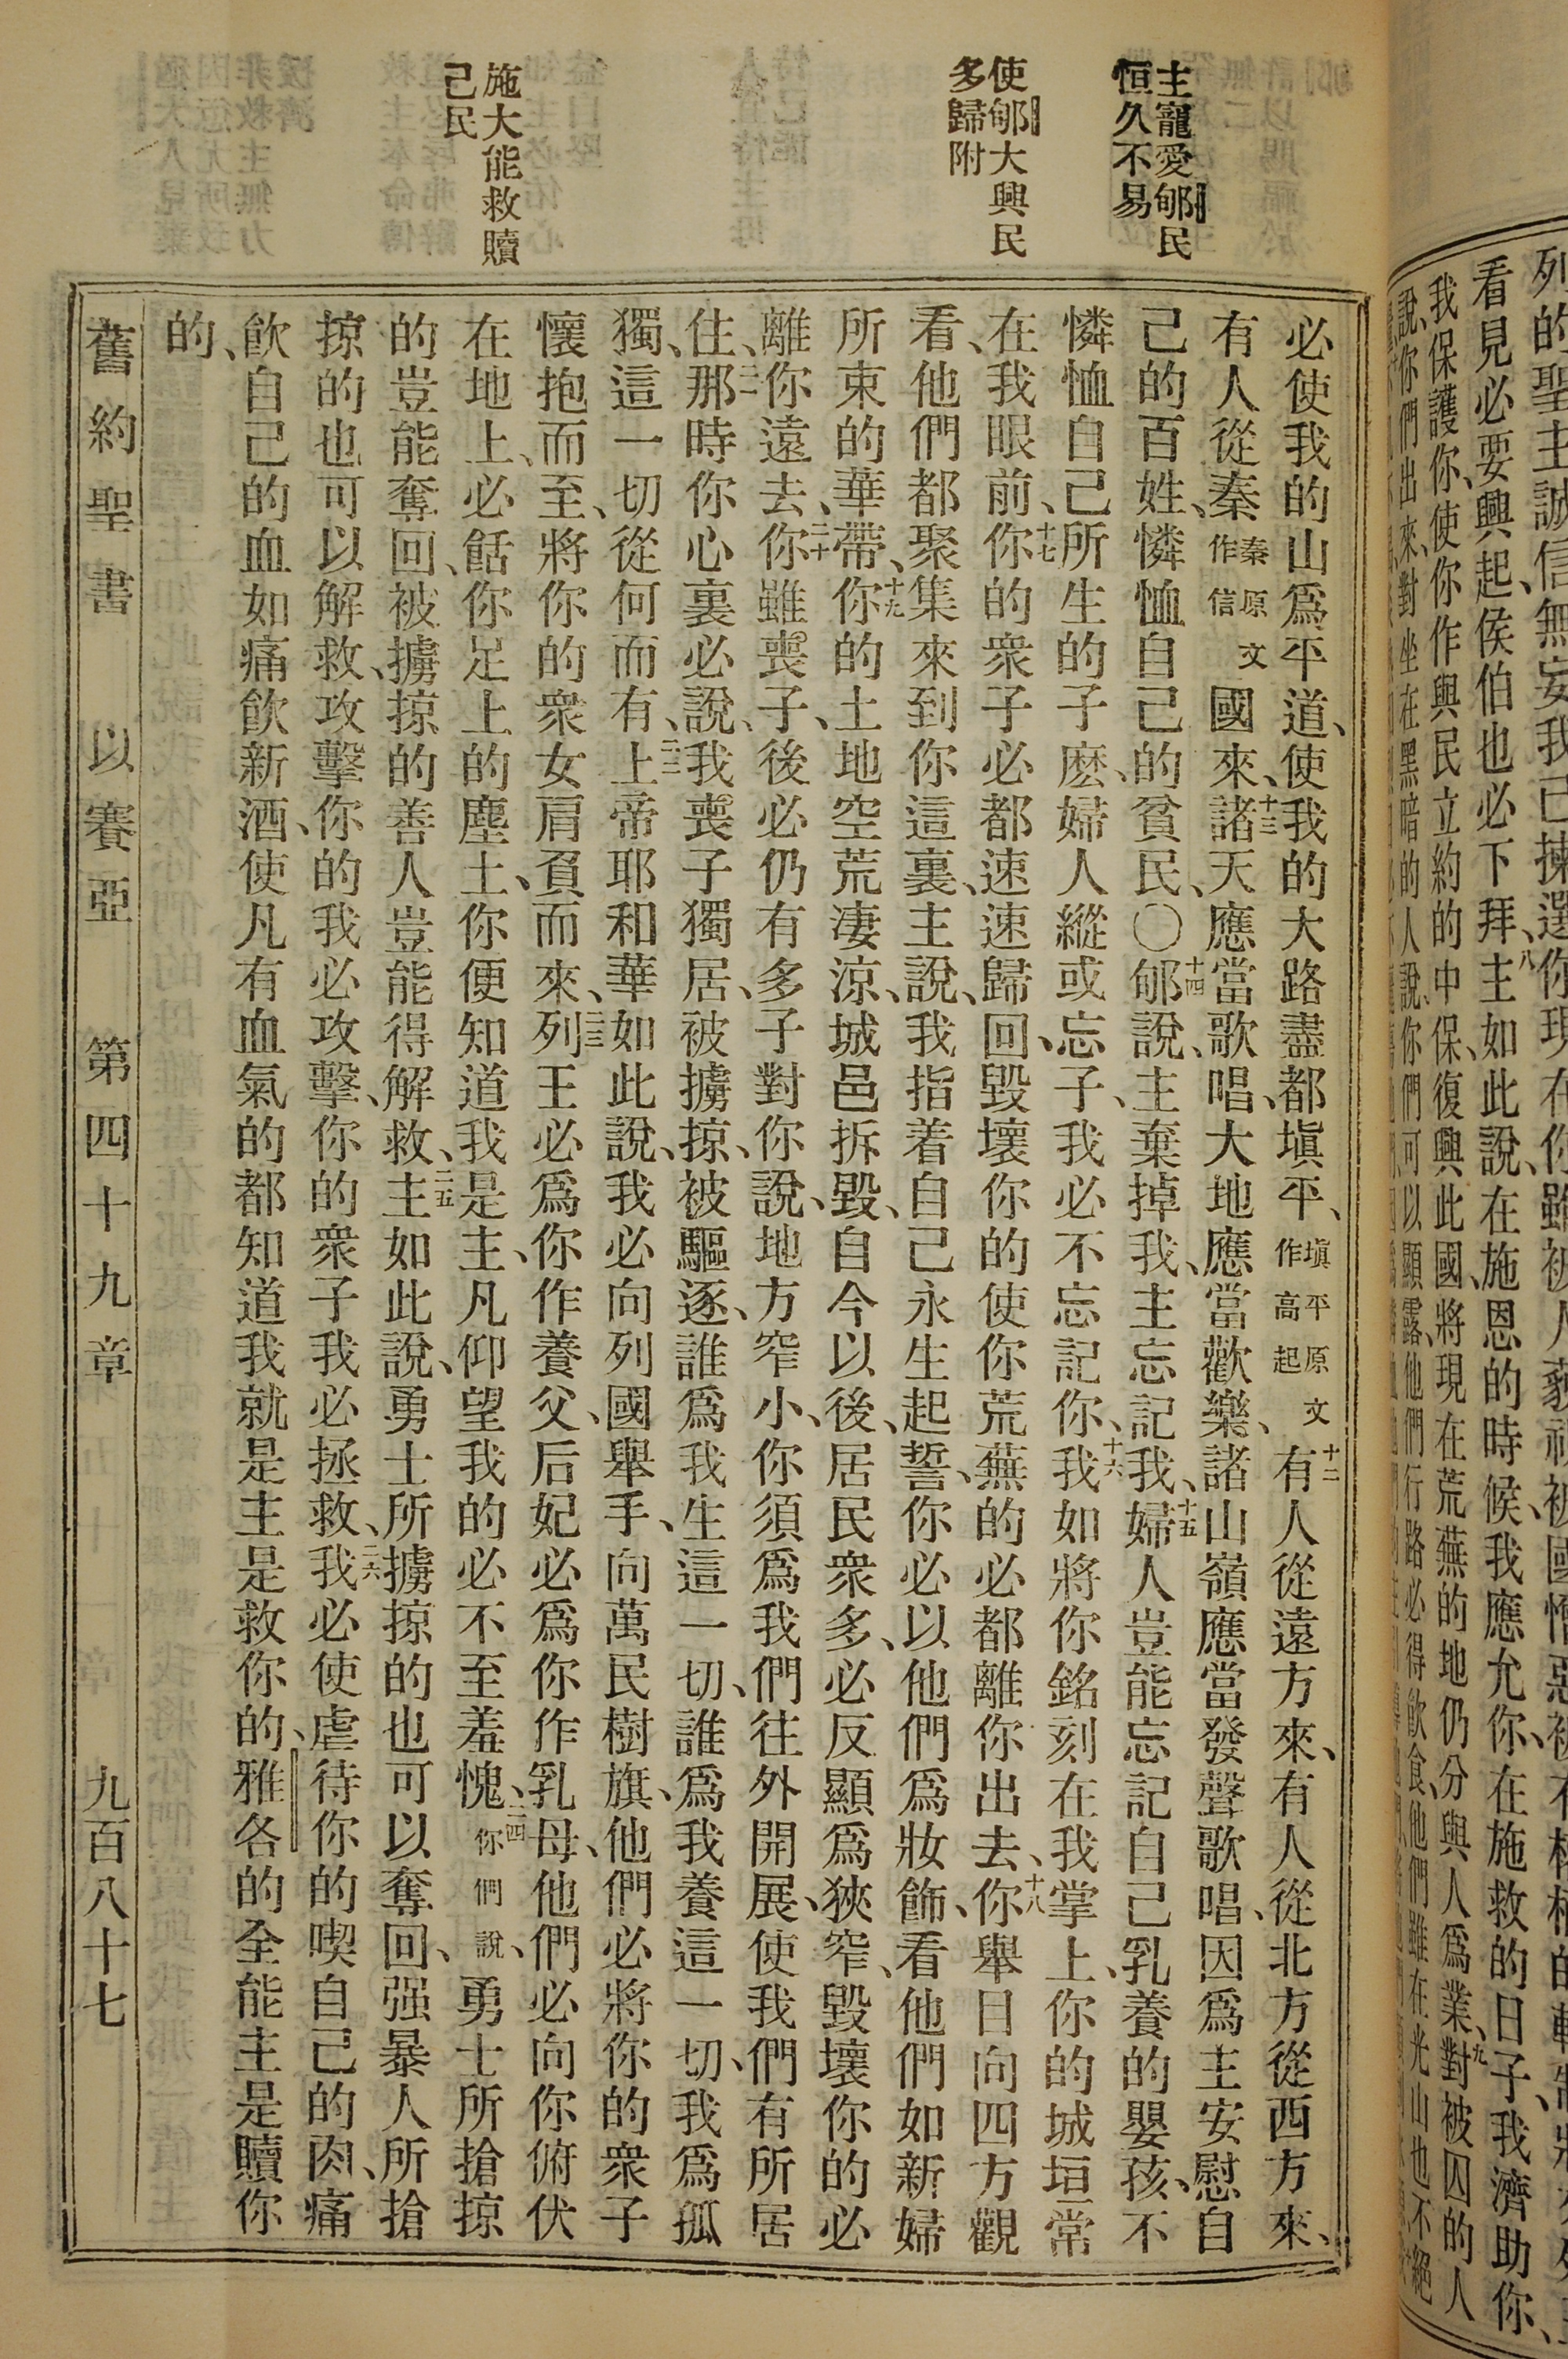 主寵愛郇民
恒久不易
使郇大興民
多歸附
施大能救贖
己民
必使我的山爲平道、使我的大路盡都塡平、塡平原文作高起十二有人從遠方來、有人從北方從西方來、
有人從秦秦原文作信國來、十三諸天應當歌唱、大地應當歡樂、諸山嶺應當發聲歌唱、因爲主安慰自
己的百姓、憐恤自己的貧民、〇十四郇說、主棄掉我、主忘記我、十五婦人豈能忘記自己乳養的嬰孩、不
憐恤自己所生的子麽、婦人縱或忘子、我必不忘記你、十六我如將你銘刻在我掌上、你的城垣常
在我眼前、十七你的衆子必都速速歸回、毀壞你的使你荒蕪的必都離你出去、十八你舉目向四方觀
看、他們都聚集來到你這裏、主說、我指着自己永生起誓、你必以他們爲妝飾、看他們如新婦
所束的華帶、十九你的土地空荒凄涼、城邑拆毀、自今以後、居民衆多、必反顯爲狹窄、毀壞你的必
離你遠去、二十你雖喪子、後必仍有多子對你說、地方窄小、你須爲我們往外開展、使我們有所居
住、二一那時你心裏必說、我喪子獨居、被擄掠、被驅逐、誰爲我生這一切、誰爲我養這一切、我爲孤
獨、這一切從何而有、二二上帝耶和華如此說、我必向列國舉手、向萬民樹旗、他們必將你的衆子
懷抱而至、將你的衆女肩負而來、二三列王必爲你作養父、后妃必爲你作乳母、他們必向你俯伏
在地上、必餂你足上的塵土、你便知道我是主、凡仰望我的必不至羞愧、二四你們說、勇士所搶掠
的豈能奪回、被擄掠的善人豈能得解救、二五主如此說、勇士所擄掠的也可以奪回、强暴人所搶
掠的也可以解救、攻擊你的我必攻擊、你的衆子我必拯救、二六我必使虐待你的喫自己的肉、痛
飮自己的血如痛飮新酒、使凡有血氣的都知道我就是主是救你的、雅各的全能主是贖你
的、
舊約聖書 以賽亞 第四十九章 九百八十七